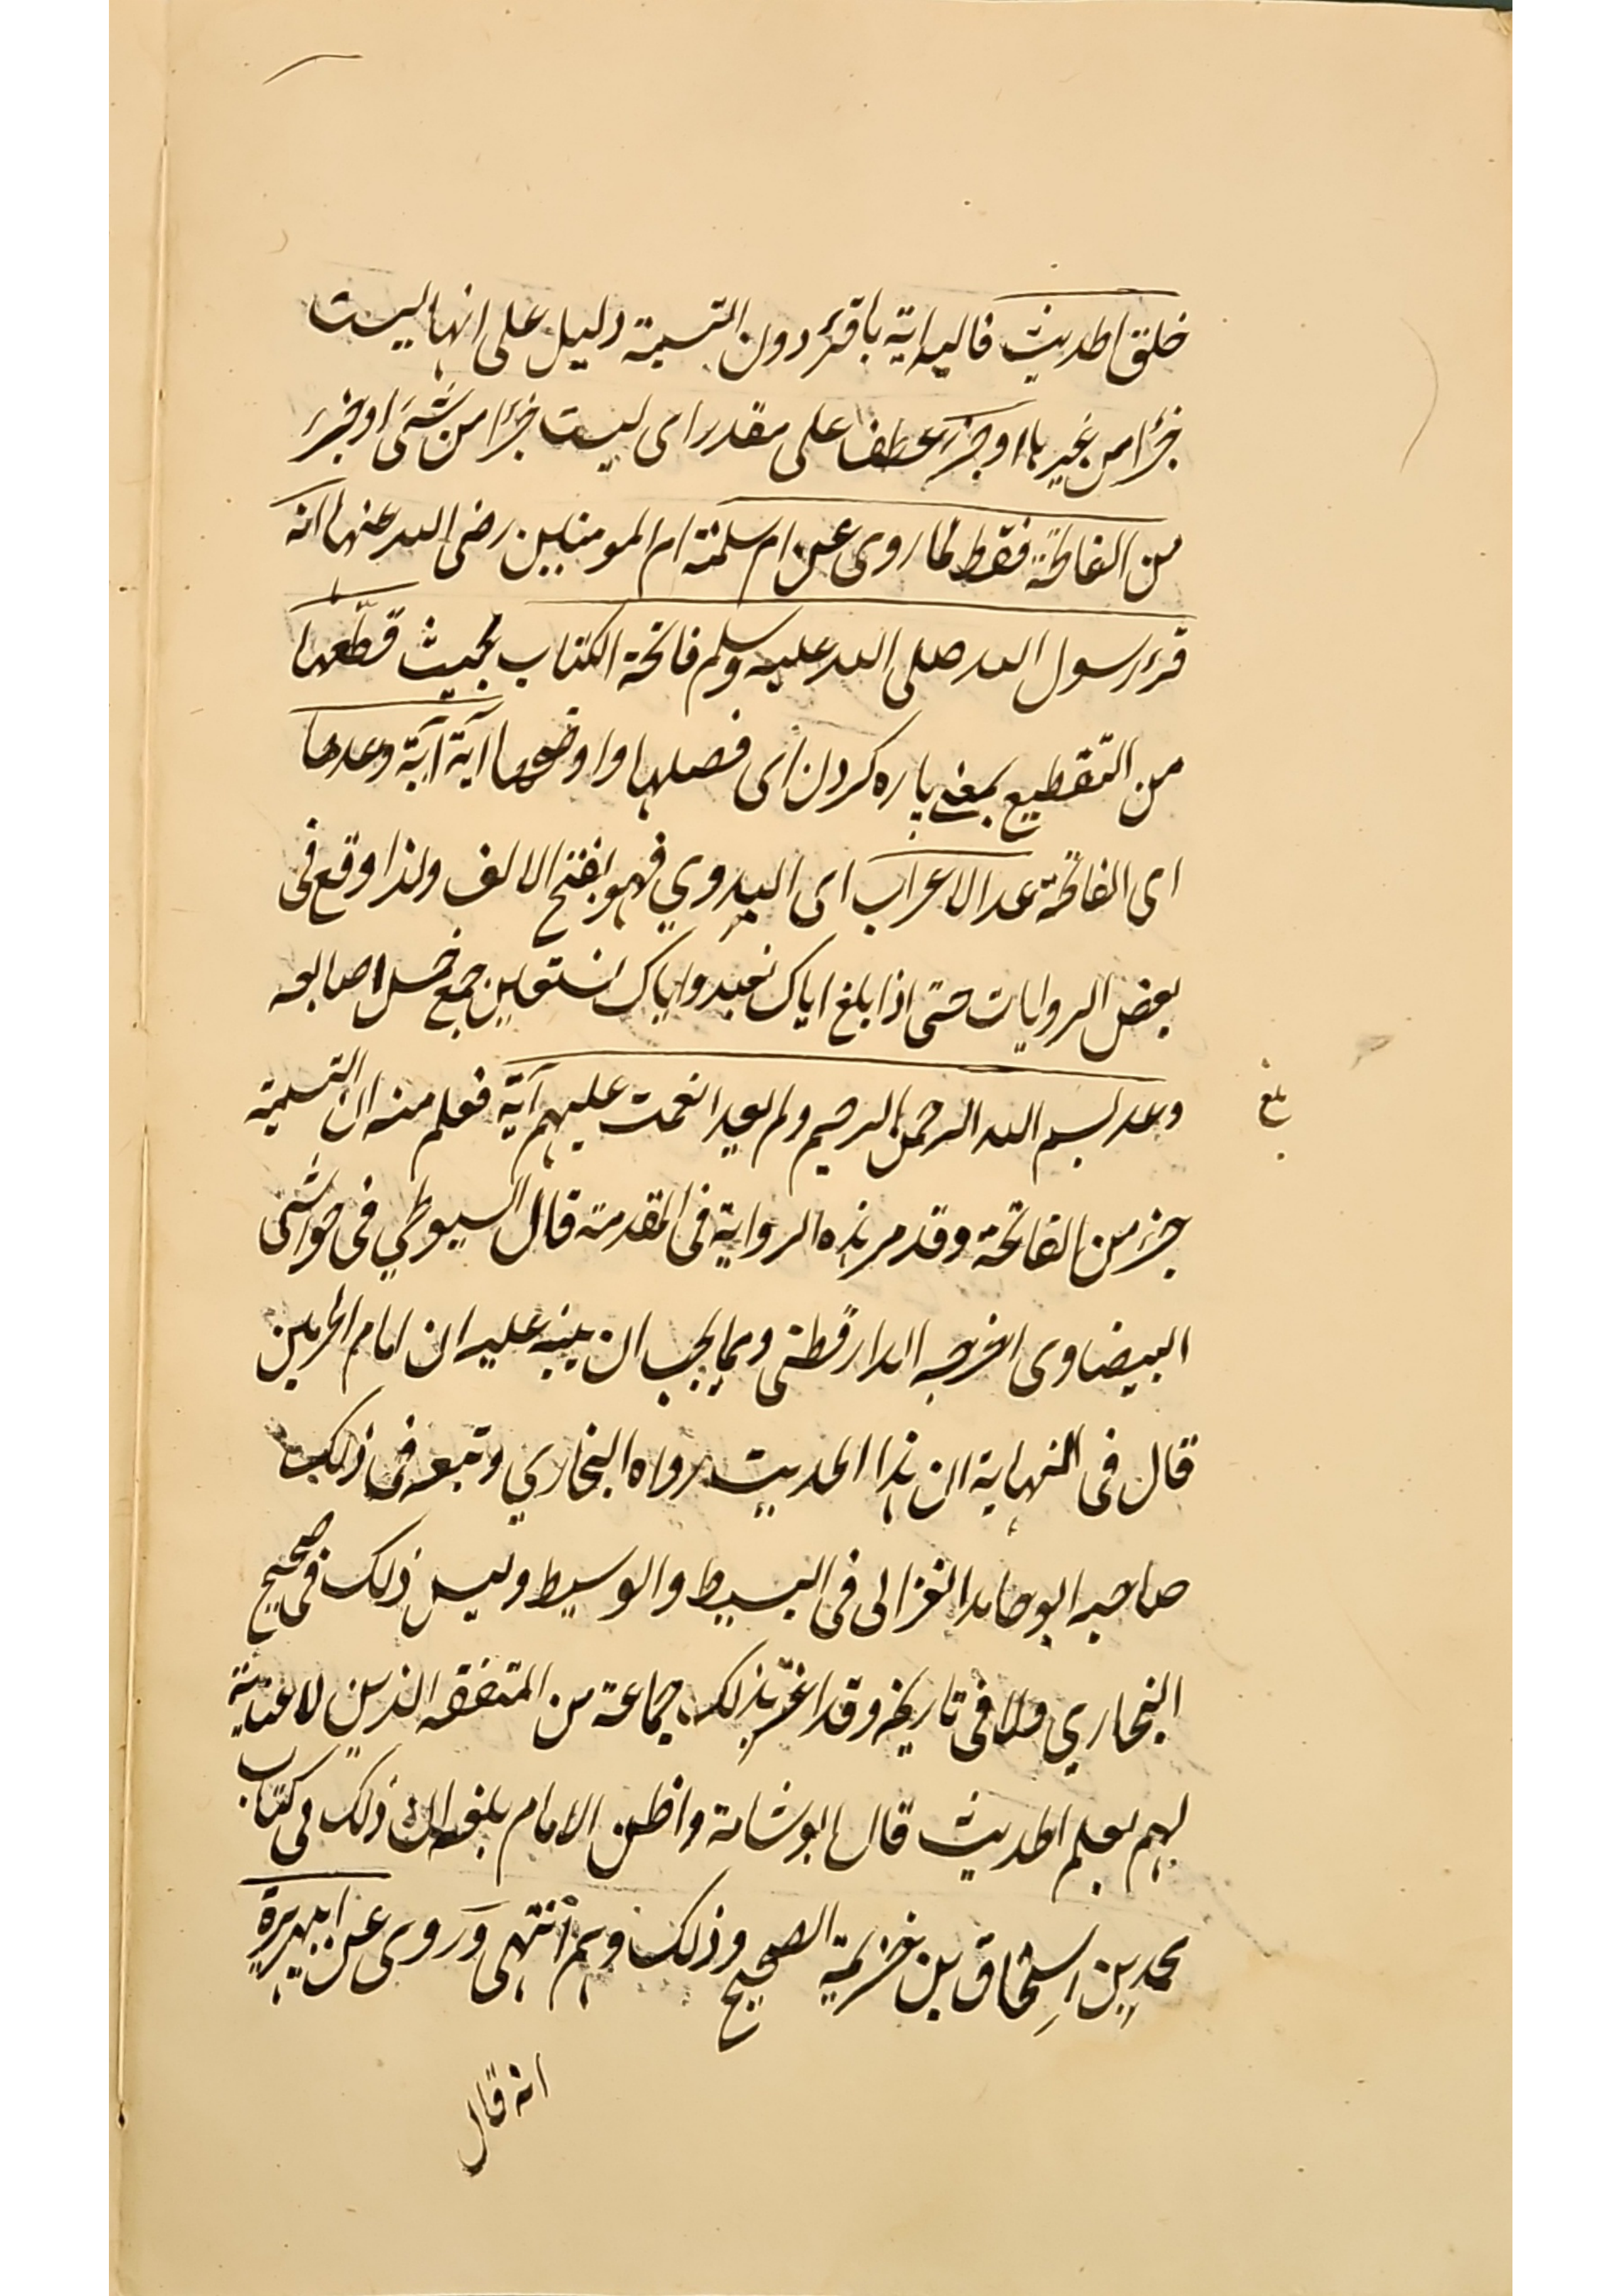 خلق الحديث فالبداية باقرء دون التسمية دليل على انها ليست
جزء امن غيرها او جزء عطف على مقدر اى ليست جزء امن شئ او جزء
من الفاتحة فقط لما روى عن ام سلمة ام المومنين رضى الله عنها انه
قرء رسول الله صلى الله عليه وسلم فاتحة الكتاب بحيث قطّعها
من التقطيع بمعنى پاره كردن اى فصلها واوضحها آية آية وعدها
اى الفاتحة عد الاعراب اى البدوي فهو بفتح الالف ولذا وقع فى
بعض الروايات حتى اذا بلغ اياك نعبد واياك نستعين جمع خمس اصابعه
وعد بسم الله الرحمن الرحيم ولم يعد انعمت عليهم آية فعلم منه ان التسمية
بلغ
جزء من الفاتحة وقد مر هذه الرواية فى المقدمة قال السيوطي فى حواشى
البيضاوى اخرجه الدارقطنى ومما يجب ان ينبه عليه ان امام الحرمين
قال فى النهاية ان هذا الحديث رواه البخاري وتبعه فى ذلك
صاحبه ابو حامد الغزالى فى البسيط والوسيط وليس ذلك فى صحيح
البخاري ولا فى تاريخه وقد اغتر بذلك جماعة من المتفقه الذين لا عناية
لهم بعلم الحديث قال ابو شامة واظن الامام بلغه ان ذلك فى كتاب
محمد بن اسحاق بن خزيمة الصحيح وذلك وهم انتهى وروى عن ابيهريرة
انه قال